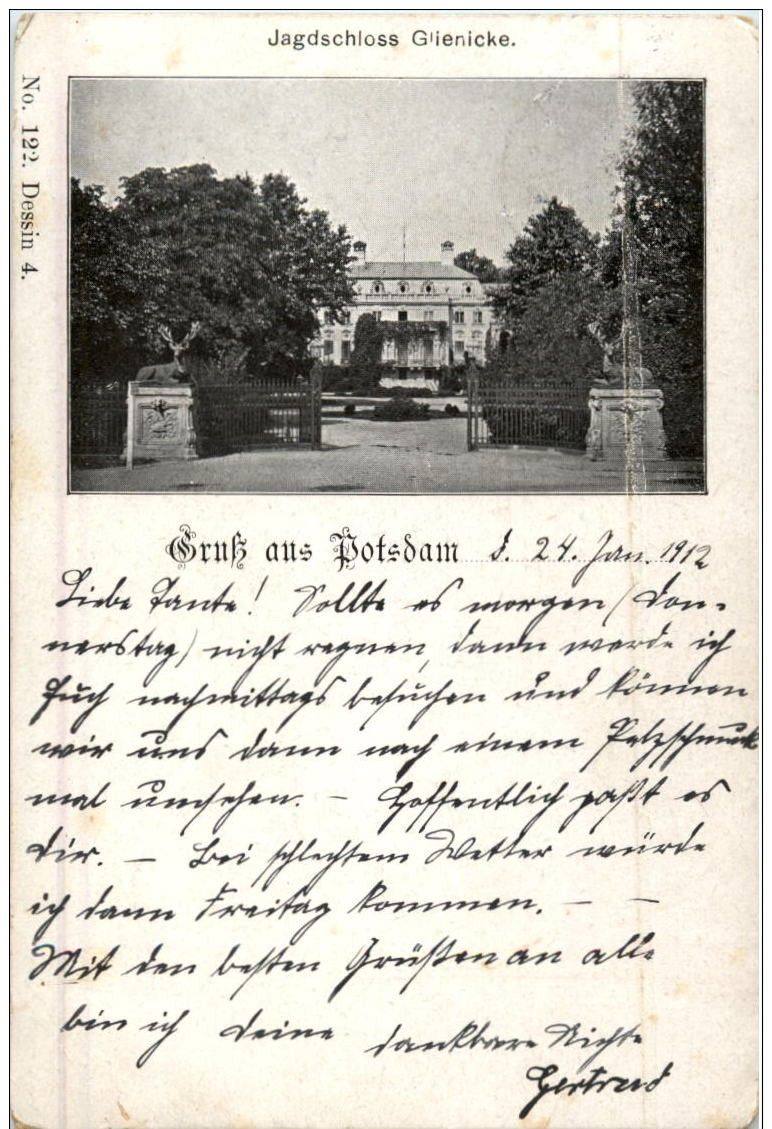 Jagdschloss Glienicke.
No. 122. Dessin 4.
Gruß aus Potsdam d. 24. Jan. 1912
Liebe Tante! Sollte es morgen (Don-
nerstag) nicht regnen, dann werde ich
Euch nachmittags besuchen und können
wir uns dann nach einem Pelzschmuck
mal umsehen. – Hoffentlich paßt es
Dir. – Bei schlechtem Wetter würde
ich dann Freitag kommen. – –
Mit den besten Grüßen an alle
bin ich Deine dankbare Nichte
Gertrud